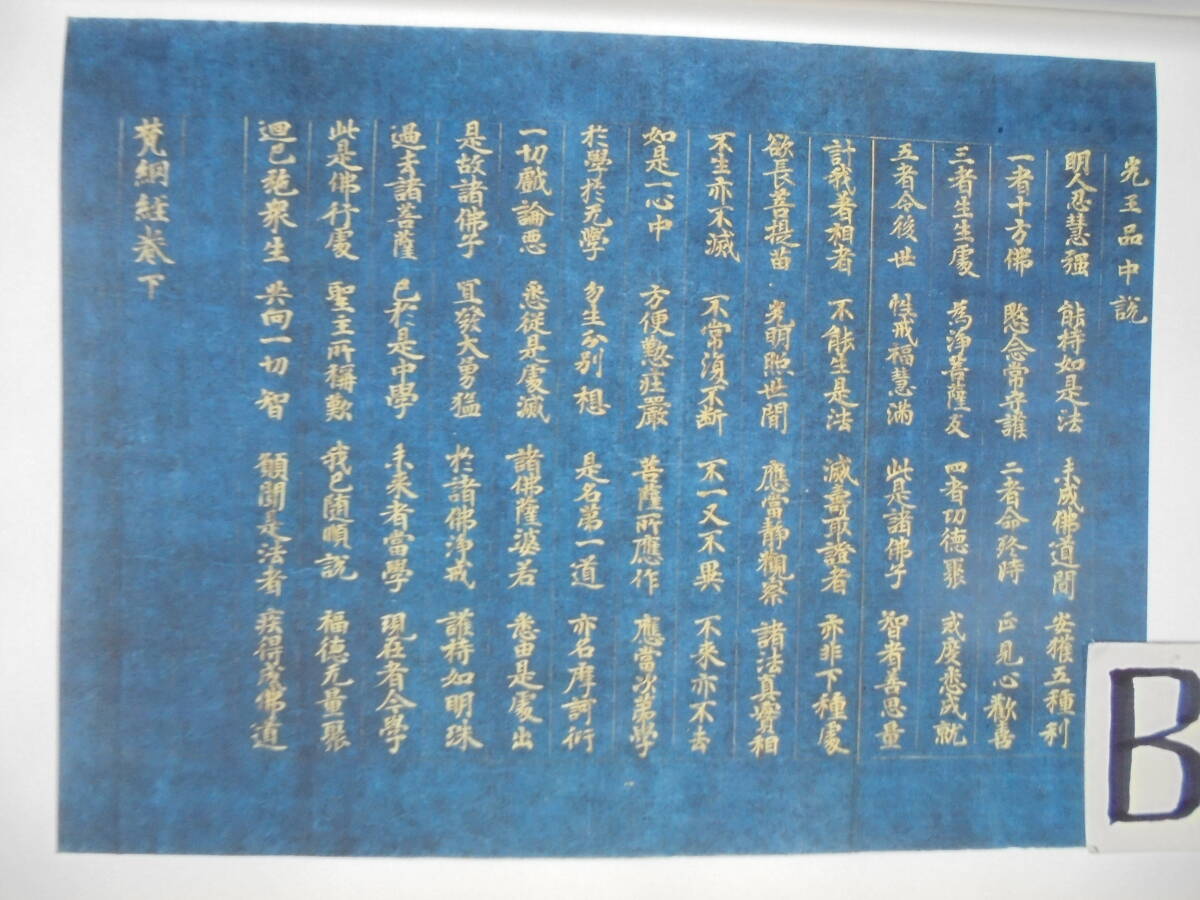 光王品中説
明人忍慧強 能持如是法 未成佛道間 安獲五種利
一者十方佛 愍念常守護 二者命終時 正見心歡喜
三者生生處 為淨菩薩友 四者功德聚 戒度悉成就
五者今後世 性戒福慧滿 此是諸佛子 智者善思量
計我著相者 不能生是法 滅壽取證者 亦非下種處
欲長菩提苗 光明照世間 應當靜觀察 諸法真實相
不生亦不滅 不常復不断 不一又不異 不来亦不去
如是一心中 方便懃莊嚴 菩薩所應作 應當次第學
於學於无學 勿生分別想 是名第一道 亦名摩訶衍
一切戲論惡 悉從是處滅 諸佛薩婆若 悉由是處出
是故諸佛子 宜發大勇猛 於諸佛淨戒 護持如明珠
過去諸菩薩 已於是中學 未来者當學 現在者今學
此是佛行處 聖主所稱歎 我已随順説 福德无量聚
迴已施衆生 共向一切智 願聞是法者 疾得成佛道
梵網經卷下
B